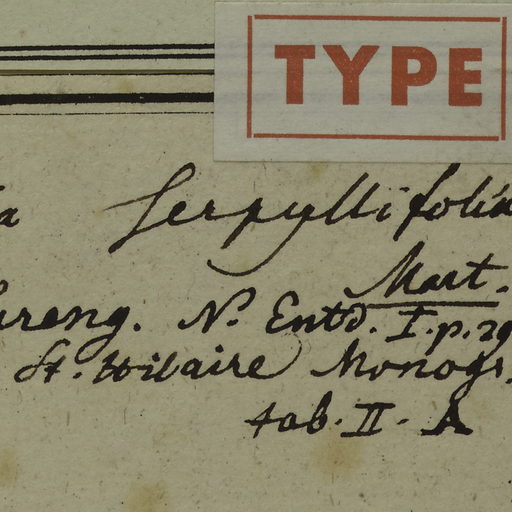 TYPE
a Serpyllifolia
Mart.
Spreng. N. Entd. I. p. 29
St. Hilaire Monogr.
tab. II. A